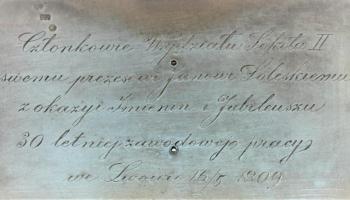 Członkowie Wydziału Sokoła II
swemu prezesowi Janowi Soleskiemu
z okazyi Imienin i Jubileuszu
30 letniej zawodowego pracy
we Lwowie 16/5 1909